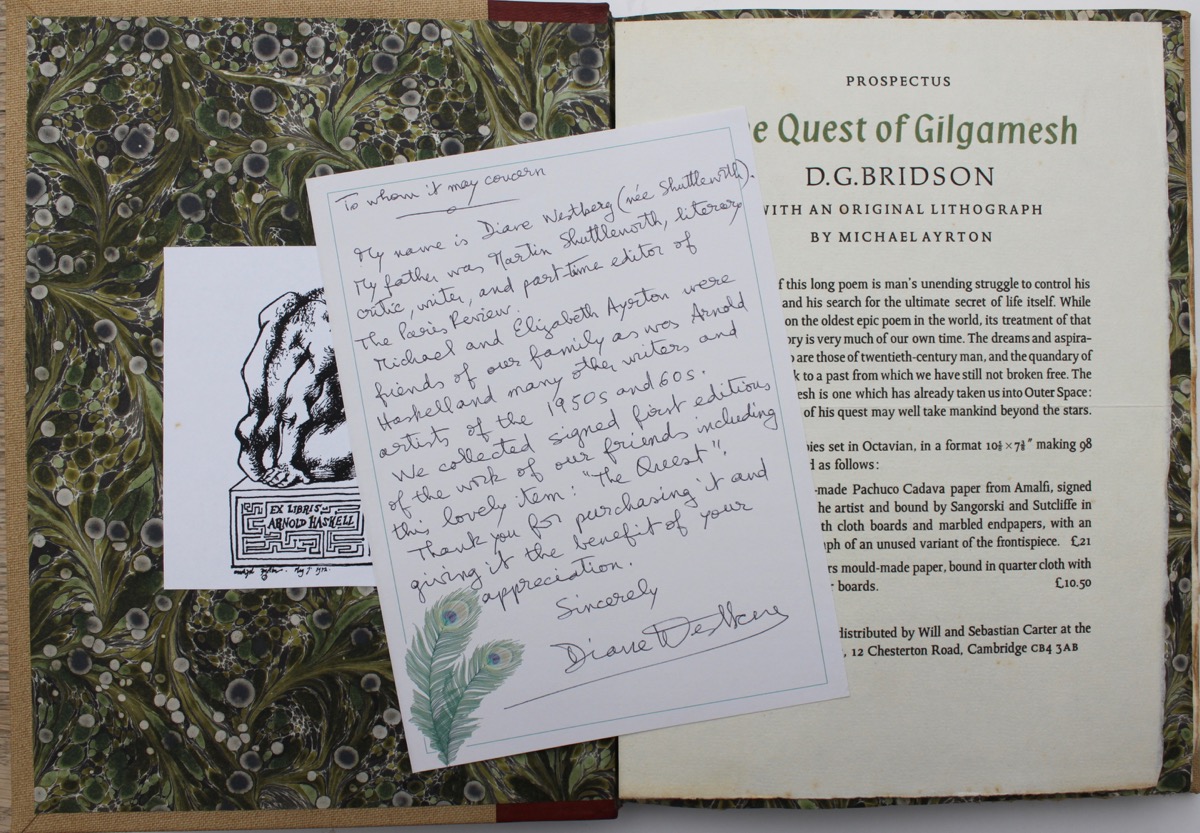 EX LIBRIS
ARNOLD HASKELL
To whom it may concern
My name is Diane Westberg (née Shuttleworth).
My father was Martin Shuttleworth, literary
critic, writer, and part-time editor of
The Paris Review.
Michael and Elizabeth Ayrton were
friends of our family as was Arnold
Haskell and many other writers and
artists of the 1950s and 60s.
We collected signed first editions
of the work of our friends including
this lovely item: "The Quest".
Thank you for purchasing it and
giving it the benefit of your
appreciation.
Sincerely
Diane Westberg
PROSPECTUS
e Quest of Gilgamesh
D.G.BRIDSON
WITH AN ORIGINAL LITHOGRAPH
BY MICHAEL AYRTON
f this long poem is man's unending struggle to control his
and his search for the ultimate secret of life itself. While
on the oldest epic poem in the world, its treatment of that
ory is very much of our own time. The dreams and aspira-
are those of twentieth-century man, and the quandary of
k to a past from which we have still not broken free. The
esh is one which has already taken us into Outer Space:
of his quest may well take mankind beyond the stars.
pies set in Octavian, in a format 10⅜ × 7⅜" making 98
d as follows:
-made Pachuco Cadava paper from Amalfi, signed
he artist and bound by Sangorski and Sutcliffe in
th cloth boards and marbled endpapers, with an
ph of an unused variant of the frontispiece. £21
rs mould-made paper, bound in quarter cloth with
r boards. £10.50
distributed by Will and Sebastian Carter at the
, 12 Chesterton Road, Cambridge CB4 3AB